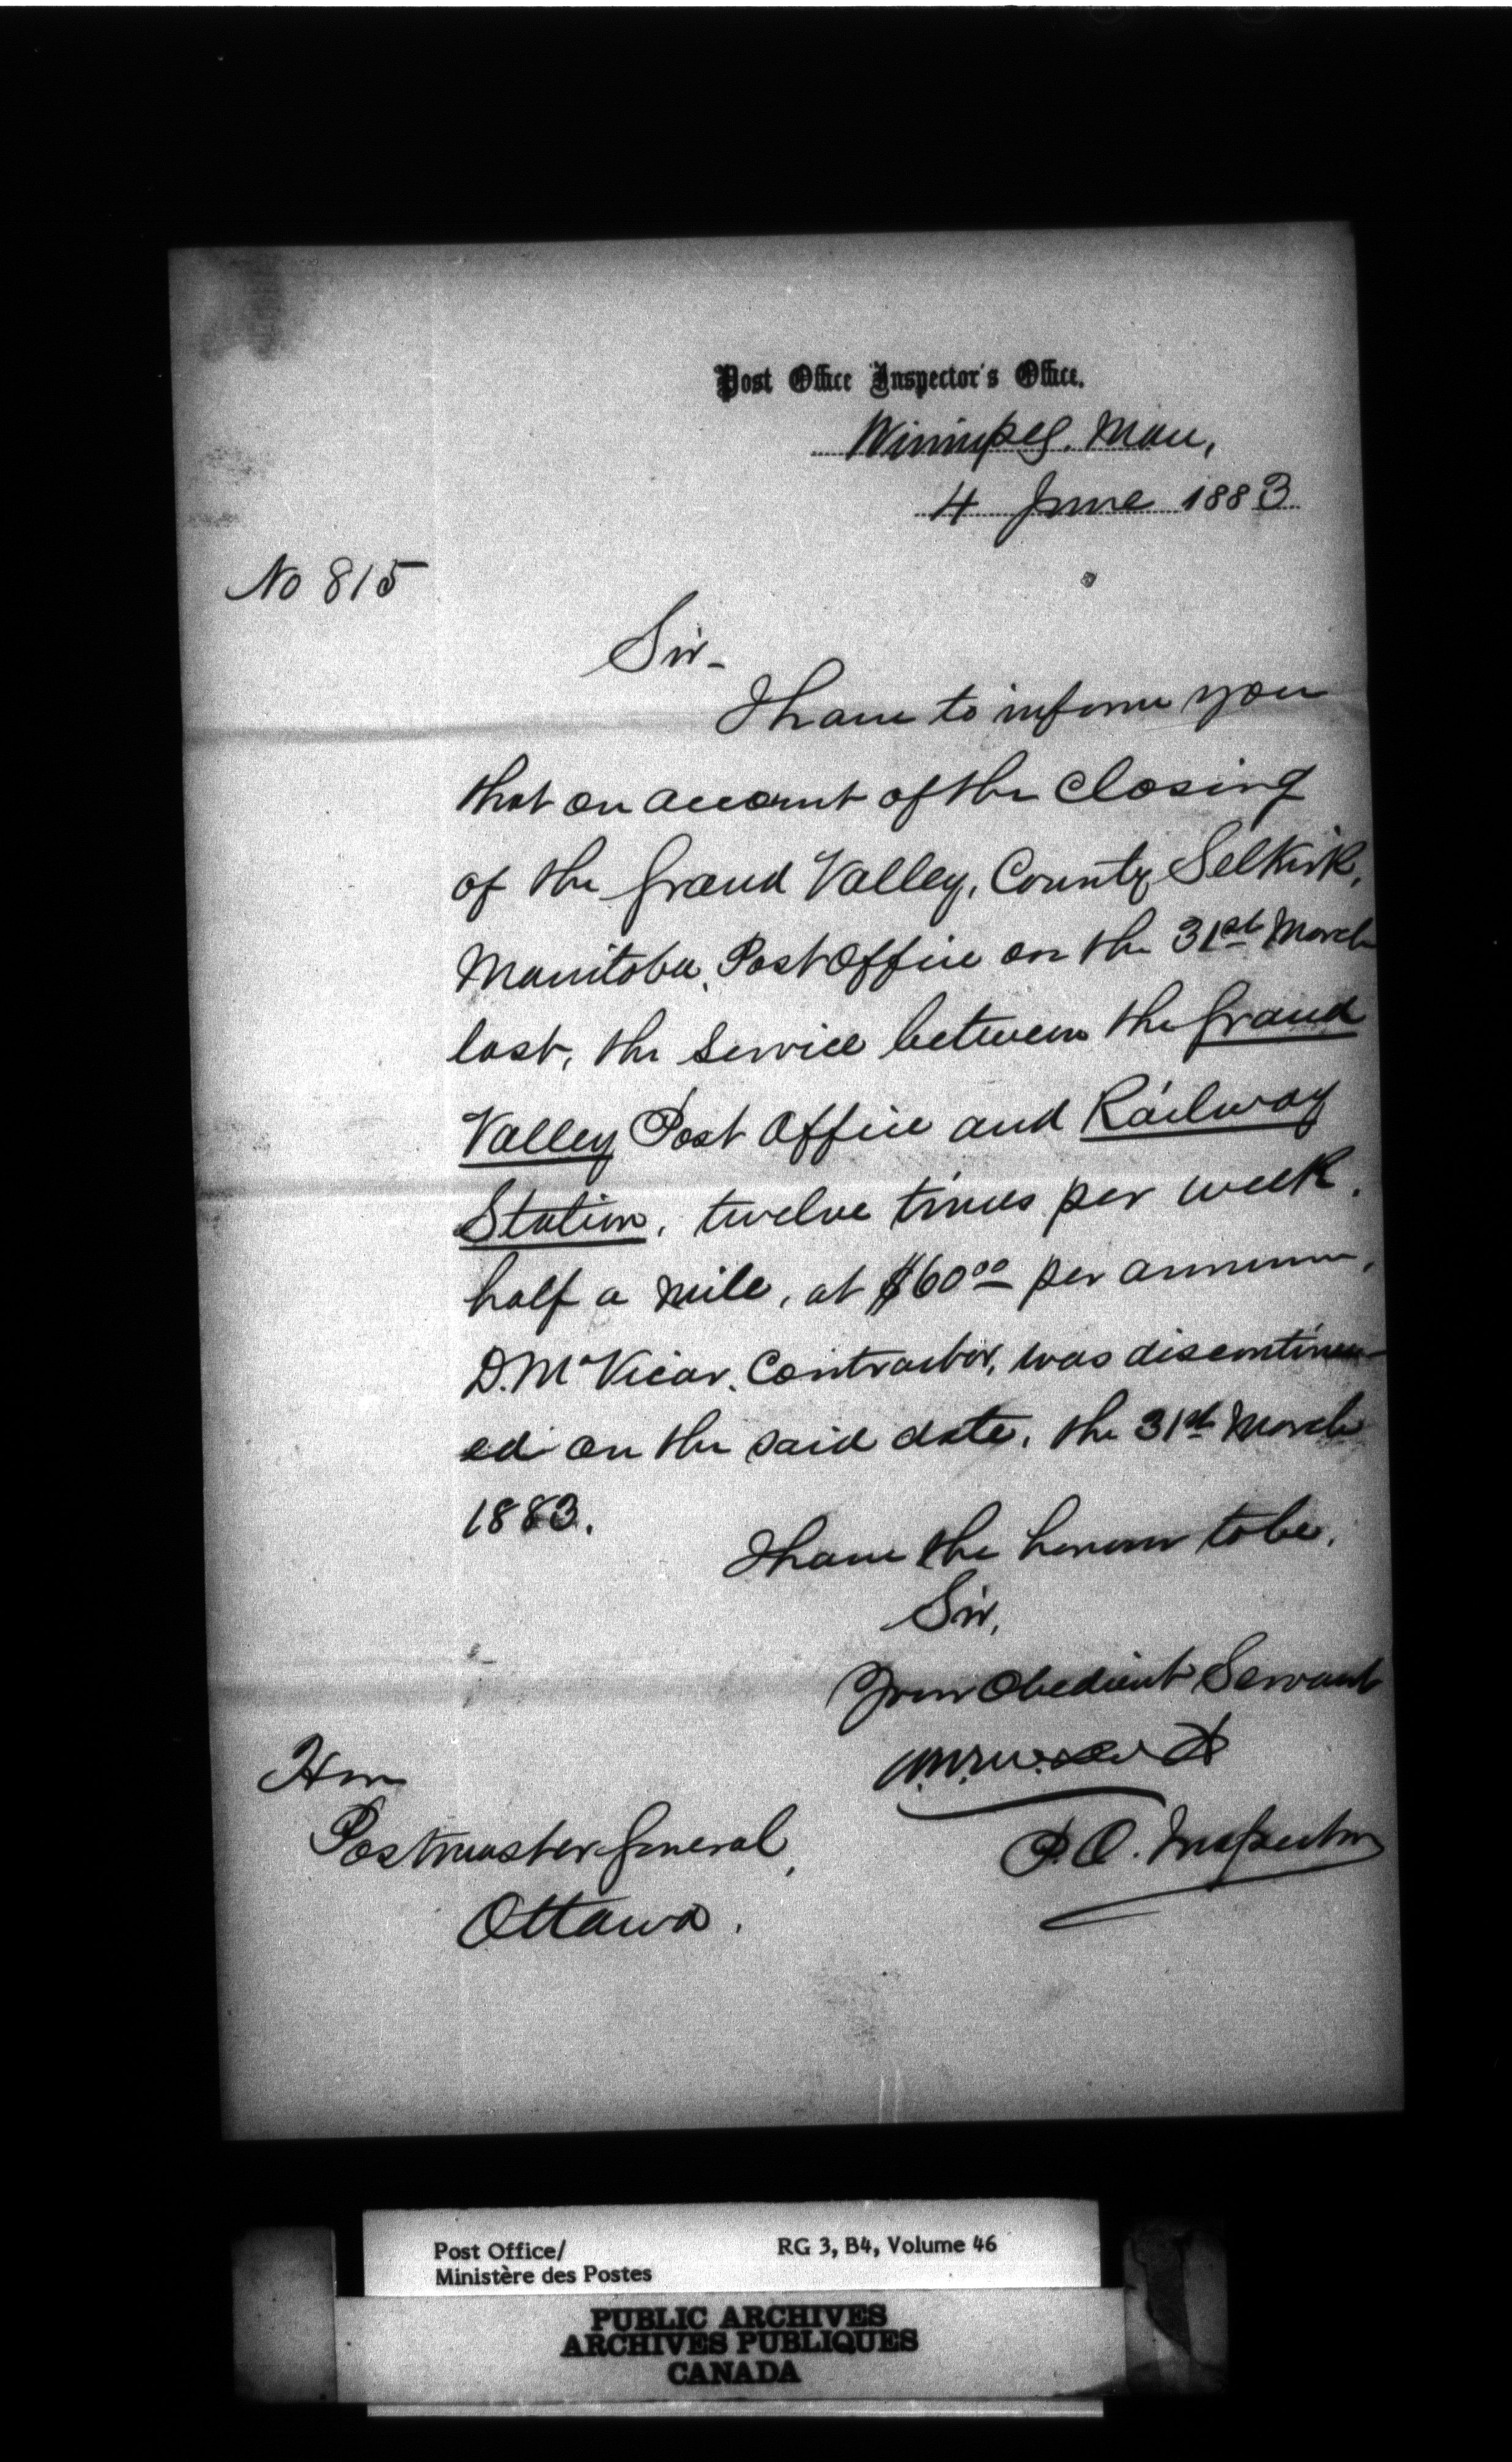 Post Office Inspector's Office.
Winnipeg. Man,
4 June 1883
No 815
Sir-
I have to inform you
that on account of the closing
of the Grand Valley, County Selkirk,
Manitoba, Post Office on the 31st March
last, the service between the Grand
Valley Post Office and Railway
Station, twelve times per week,
half a mile, at $60 00 per annum,
D. McVicar, Contractor, was discontinu-
ed on the said date, the 31st March
1883.
I have the honour to be,
Sir,
Your Obedient Servant
P.O. Inspector
Hon
Postmaster General,
Ottawa.
Post Office/
Ministère des Postes
RG 3, B4, Volume 46
PUBLIC ARCHIVES
ARCHIVES PUBLIQUES
CANADA